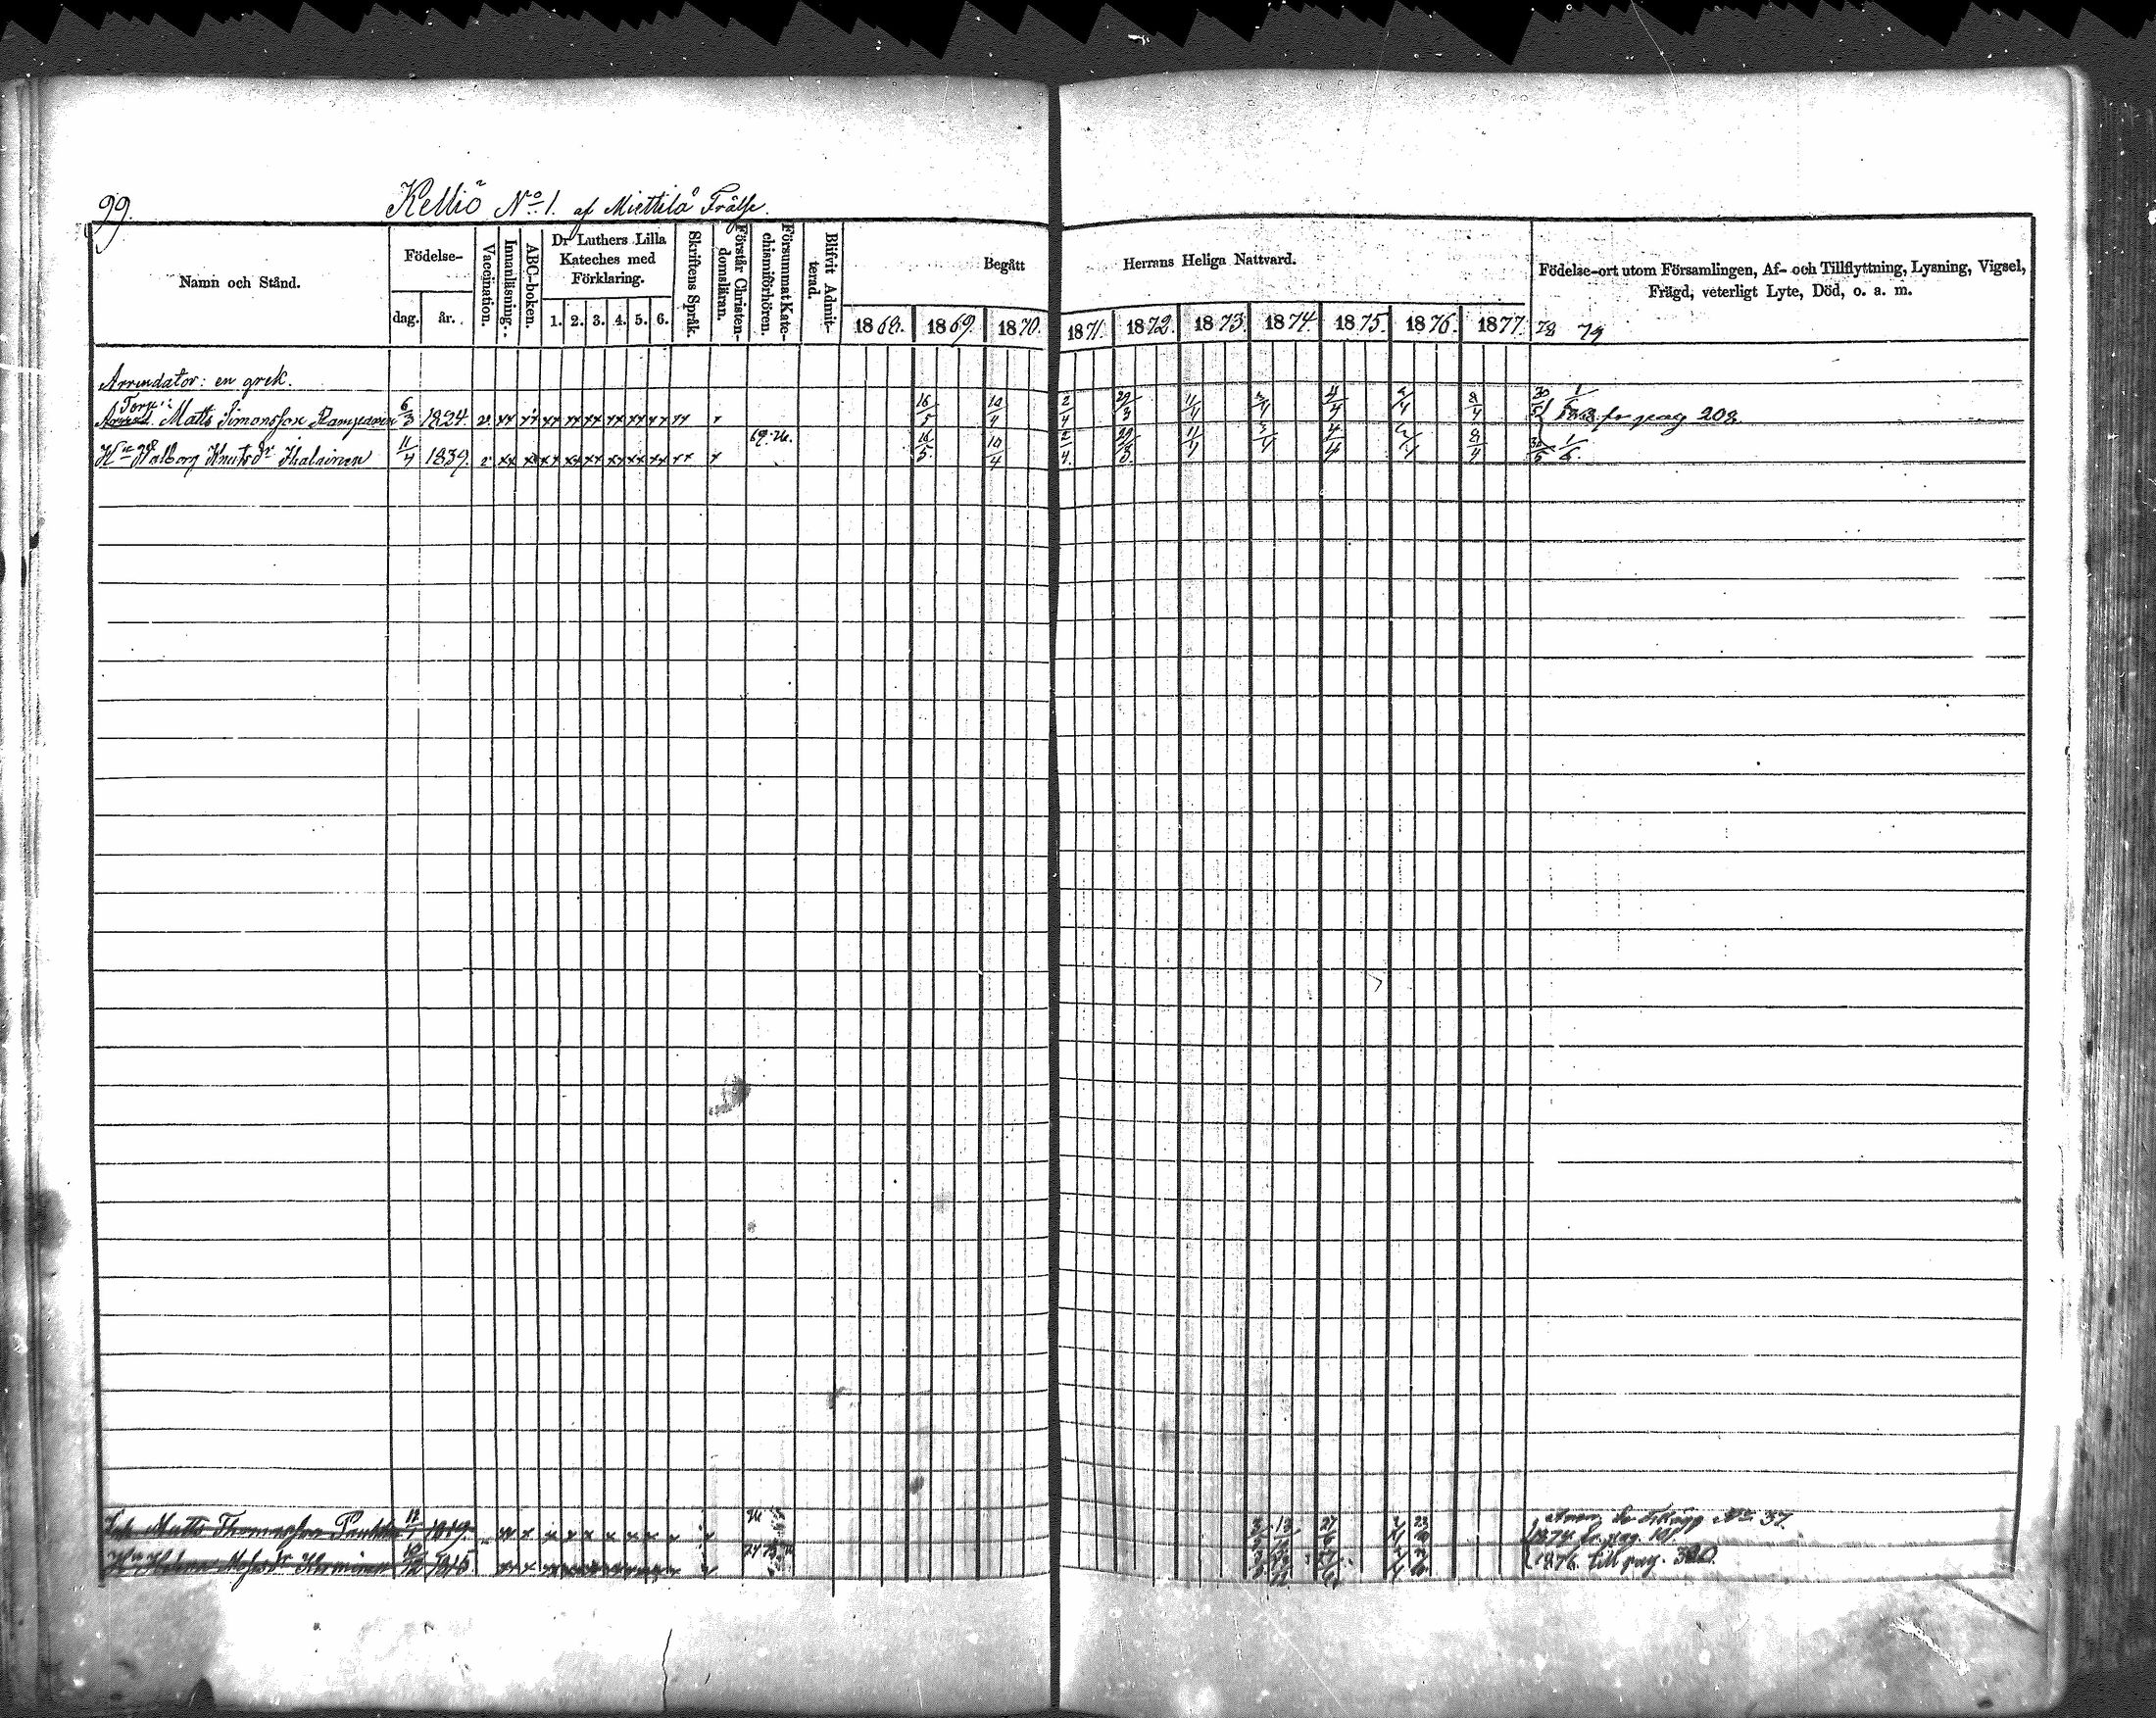 99.
Kelliö No 1. af Miettilä Frälse.
Namn och Stånd.
Födelse-
dag.
år.
Vaccination.
Innanläsning.
ABC-boken.
Dr Luthers Lilla
Kateches med
Förklaring.
1. 2. 3. 4. 5. 6.
Skriftens Språk.
Förstår Christen-
domsläran.
Försummat Kate-
chismiförhören.
Blifvit Admit-
terad.
Begått Herrans Heliga Nattvard.
1868. 1869. 1870. 1871. 1872. 1873 1874. 1875. 1876. 1877. 78 79
Födelse-ort utom Församlingen, Af- och Tillflyttning, Lysning, Vigsel,
Frägd, veterligt Lyte, Död, o. a. m.
Arrendator: en grek.
Torp. Matts Simonsson 6/3 1824. v. xx xx xx xx xx xx xx xx xx x 16/5 10/4 2/4 29/3 11/4 3/4 4/4 2/4 8/4 20/5 1/5 1868 fr pag 208
Hu Walborg Knutsdr Ihalainen 11/4 1839. v xx xx xx xx xx xx xx xx xx x 69. 76. 16/5 10/4 2/4 29/3 11/4 3/4 4/4 2/4 8/4 1/5.
Matts Thomasson 12/1 1819. 76
1874 fr. pag. 101
Hu Helena 1815.
1876 till pag. 320.